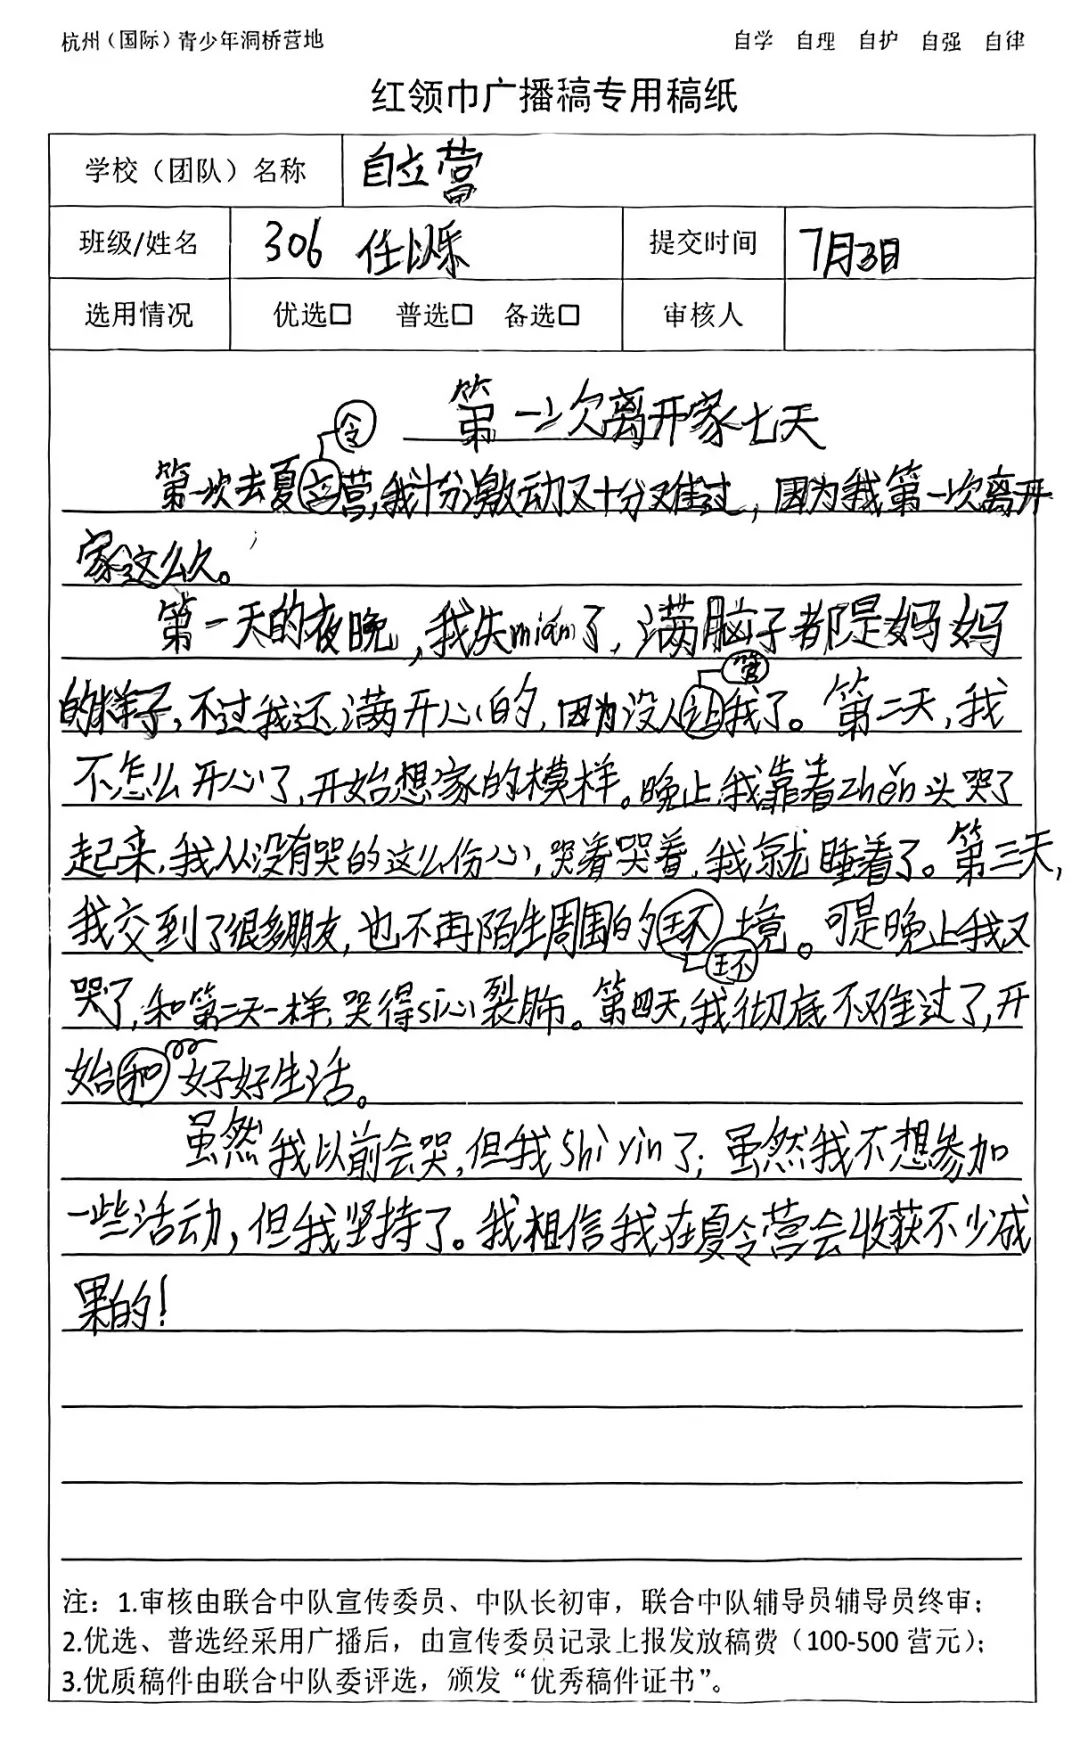 杭州（国际）青少年洞桥营地 自学 自理 自护 自强 自律
红领巾广播稿专用稿纸
学校（团队）名称 自立营
班级/姓名 306 任以乐 提交时间 7月3日
选用情况 优选□ 普选□ 备选□ 审核人
第一次离开家七天
令
第一次去夏立营，我十分激动又十分难过，因为我第一次离开
家这么久。
第一天的夜晚，我失mián了，满脑子都是妈妈
管
的样子，不过我还满开心的，因为没人我了。第二天，我
不怎么开心了，开始想家的模样。晚上，我靠着zhěn头哭了
起来，我从没有哭的这么伤心，哭着哭着，我就睡着了。第三天，
我交到了很多朋友，也不再陌生周围的环境。可是晚上我又
环
哭了，和第二天一样，哭得sī心裂肺。第四天，我彻底不难过了，开
始和好好生活。
虽然我以前会哭，但我shì yìn了；虽然我不想参加
一些活动，但我坚持了。我相信我在夏令营会收获不少成
果的！
注：1.审核由联合中队宣传委员、中队长初审，联合中队辅导员辅导员终审；
2.优选、普选经采用广播后，由宣传委员记录上报发放稿费（100-500 营元）；
3.优质稿件由联合中队委评选，颁发“优秀稿件证书”。